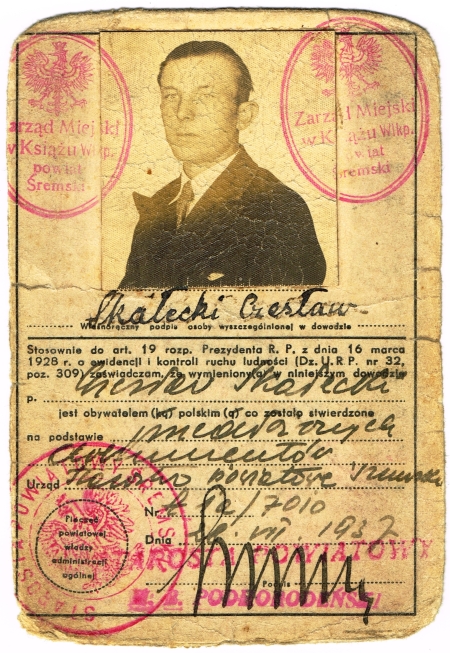 Zarząd Miejski
w Książu Wlkp.
powiat
Śremski
Zarząd Miejski
w Książu Wlkp.
powiat
Śremski
Skałecki Czesław
Własnoręczny podpis osoby wyszczególnionej w dowodzie
Stosownie do art. 19 rozp. Prezydenta R. P. z dnia 16 marca
1928 r. o ewidencji i kontroli ruchu ludności (Dz. U. R. P. nr 32,
poz. 309) zaświadczam, że wymieniony(a) w niniejszym dowodzie
p. Czesław Skałecki
jest obywatelem (ką) polskim (ą) co zostało stwierdzone
na podstawie
dokumentów
Urząd Starostwo powiatowe
Nr. /7010
Dnia VII. 1937
Pieczęć
powiatowej
władzy
administracji
ogólnej
STAROSTA POWIATOWY
Podpis